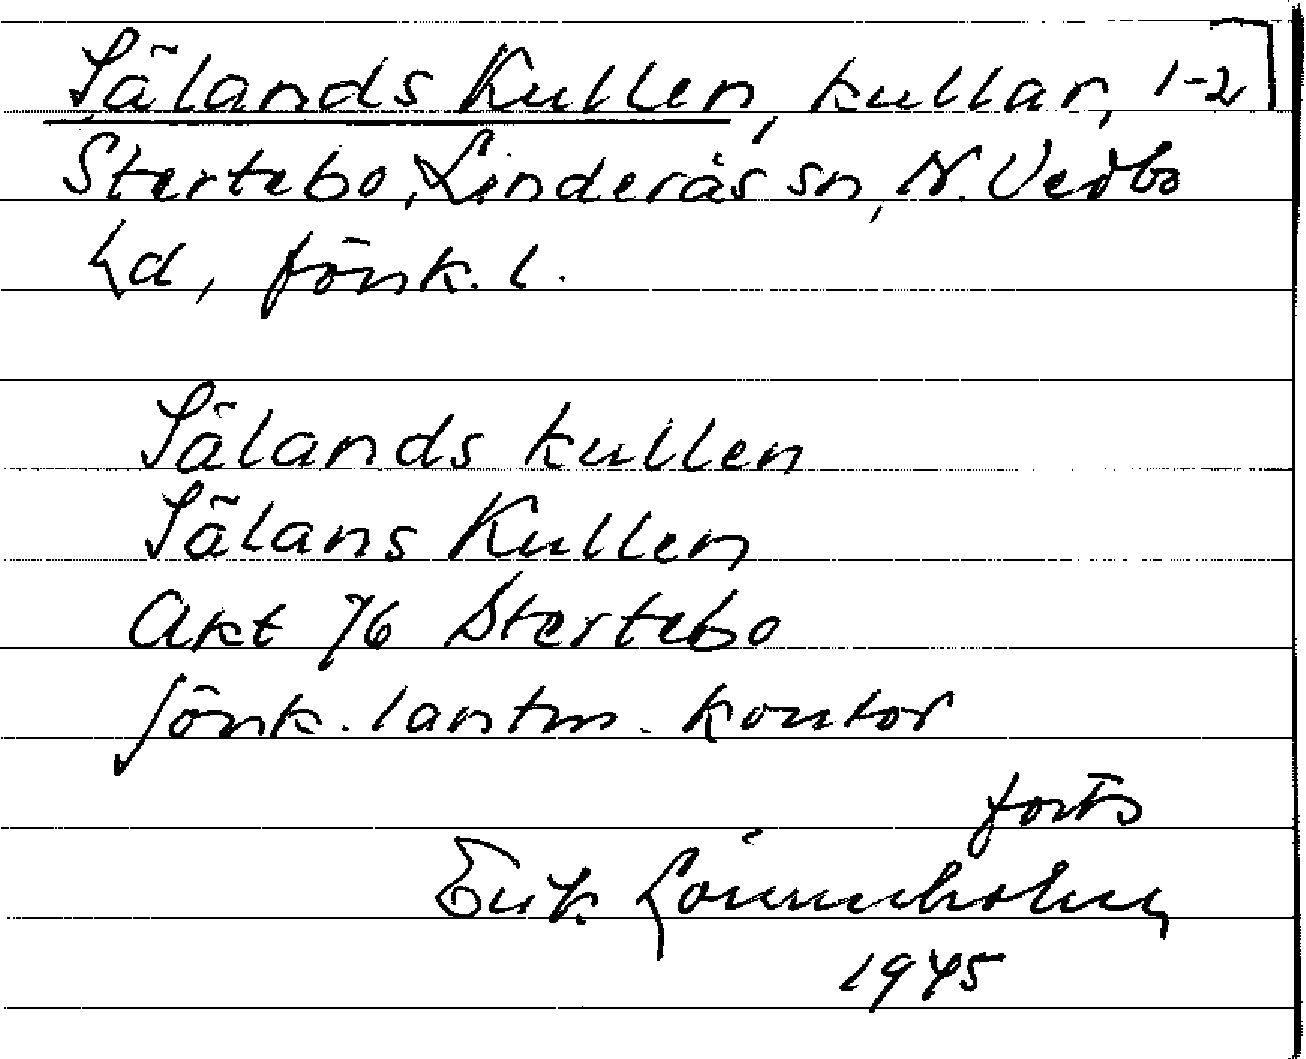 Sälands Kullen, kullar, 1-2
Stertebo, Linderås sn, N. Vedbo
hd, Jönk. l.
Sälands kullen
Sälans Kullen
Akt 76 Stertebo
Jönk. lantm. kontor
forts
Erik Lönnholm
1945